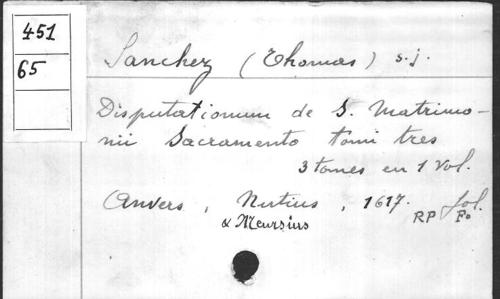 451
65
Sanchez (Thomas) s.j.
Disputationum de S. Matrimo-
nii Sacramento tomi tres
3 tomes en 1 Vol.
Anvers, Nutius, 1617. fol.
& Meursius
RP Fo